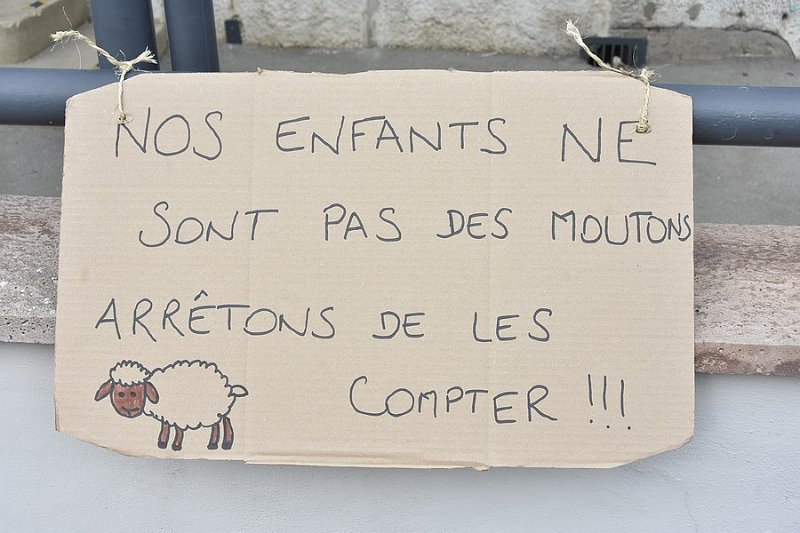 NOS ENFANTS NE
SONT PAS DES MOUTONS
ARRÊTONS DE LES
COMPTER !!!